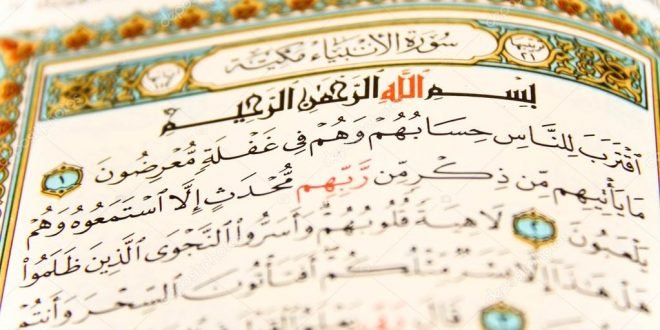 ترتيبها ٢١ سُورَةُ الأَنبِيَاءِ مَكِّيَّة
بِسْمِ ٱللَّهِ ٱلرَّحْمَٰنِ ٱلرَّحِيمِ
ٱقْتَرَبَ لِلنَّاسِ حِسَابُهُمْ وَهُمْ فِى غَفْلَةٍ مُّعْرِضُونَ ١
مَا يَأْتِيهِم مِّن ذِكْرٍ مِّن رَّبِّهِم مُّحْدَثٍ إِلَّا ٱسْتَمَعُوهُ وَهُمْ
يَلْعَبُونَ ٢ لَاهِيَةً قُلُوبُهُمْ وَأَسَرُّوا۟ ٱلنَّجْوَى ٱلَّذِينَ ظَلَمُوا۟
هَلْ هَٰذَا إِلَّا بَشَرٌ مِّثْلُكُمْ أَفَتَأْتُونَ ٱلسِّحْرَ وَأَنتُمْ
قَالَ رَبِّى